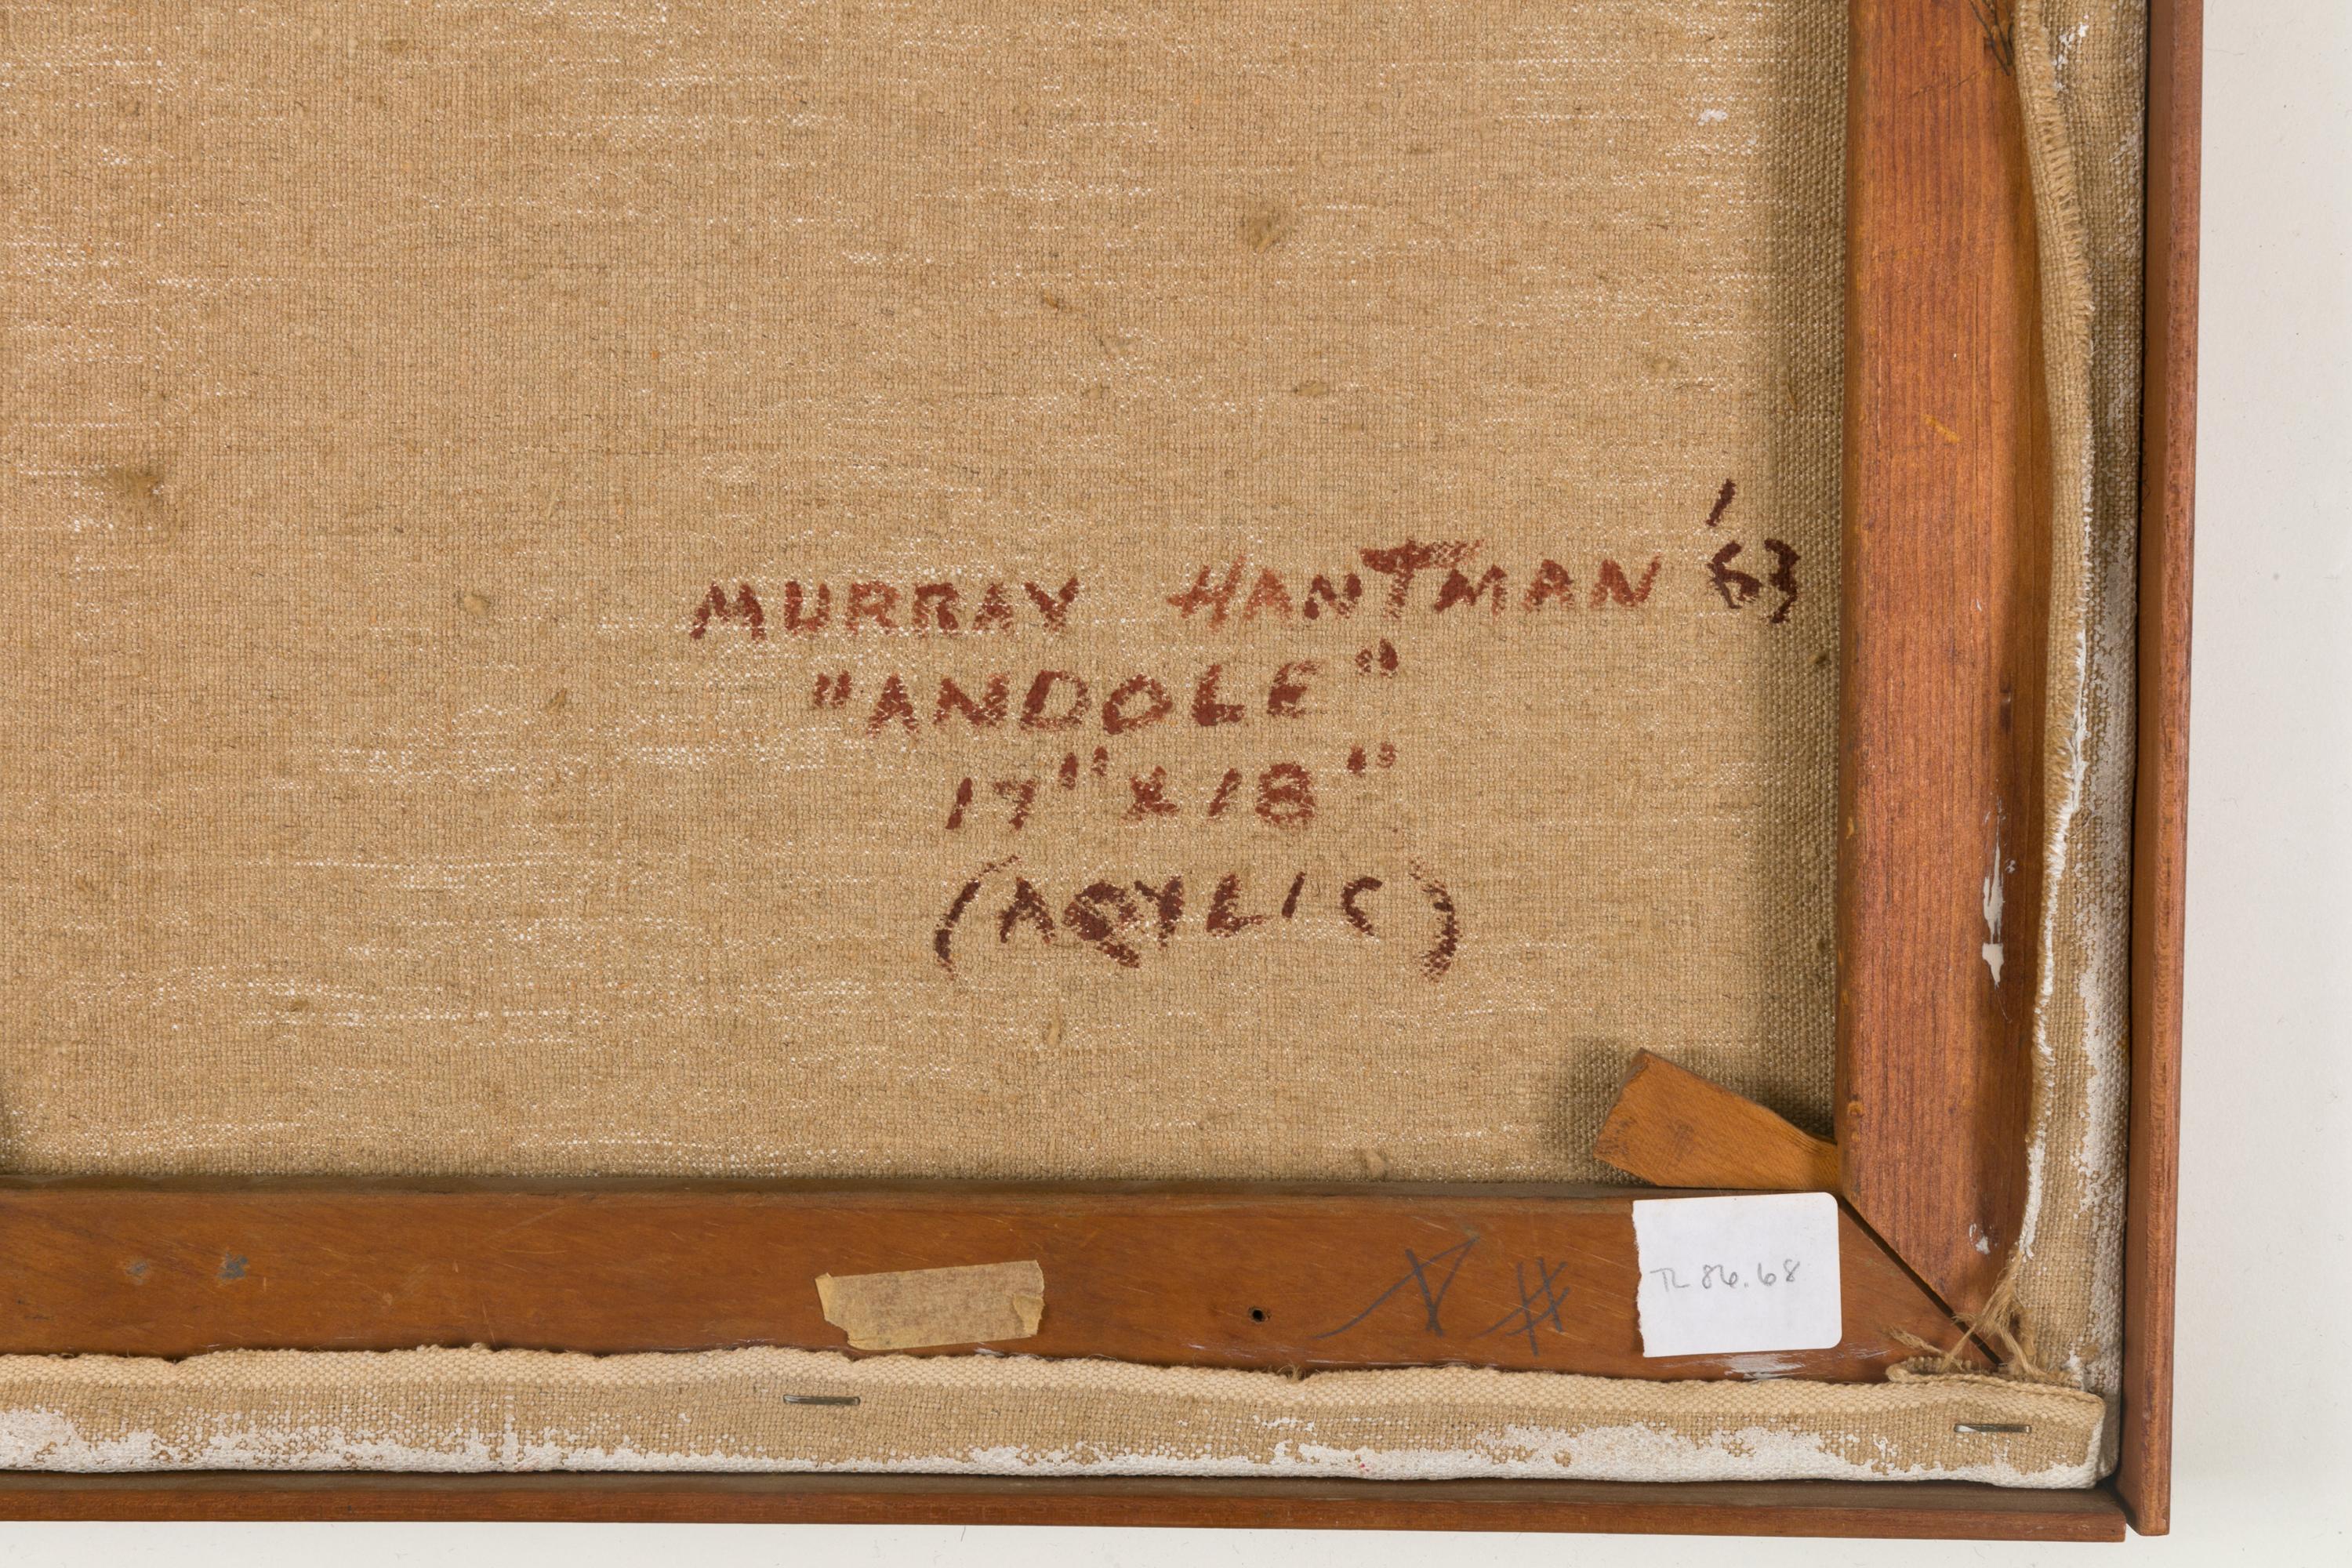 MURRAY HANTMAN '63
"ANDOLE"
17" x 18"
(AQYLIC)
TL 86.68